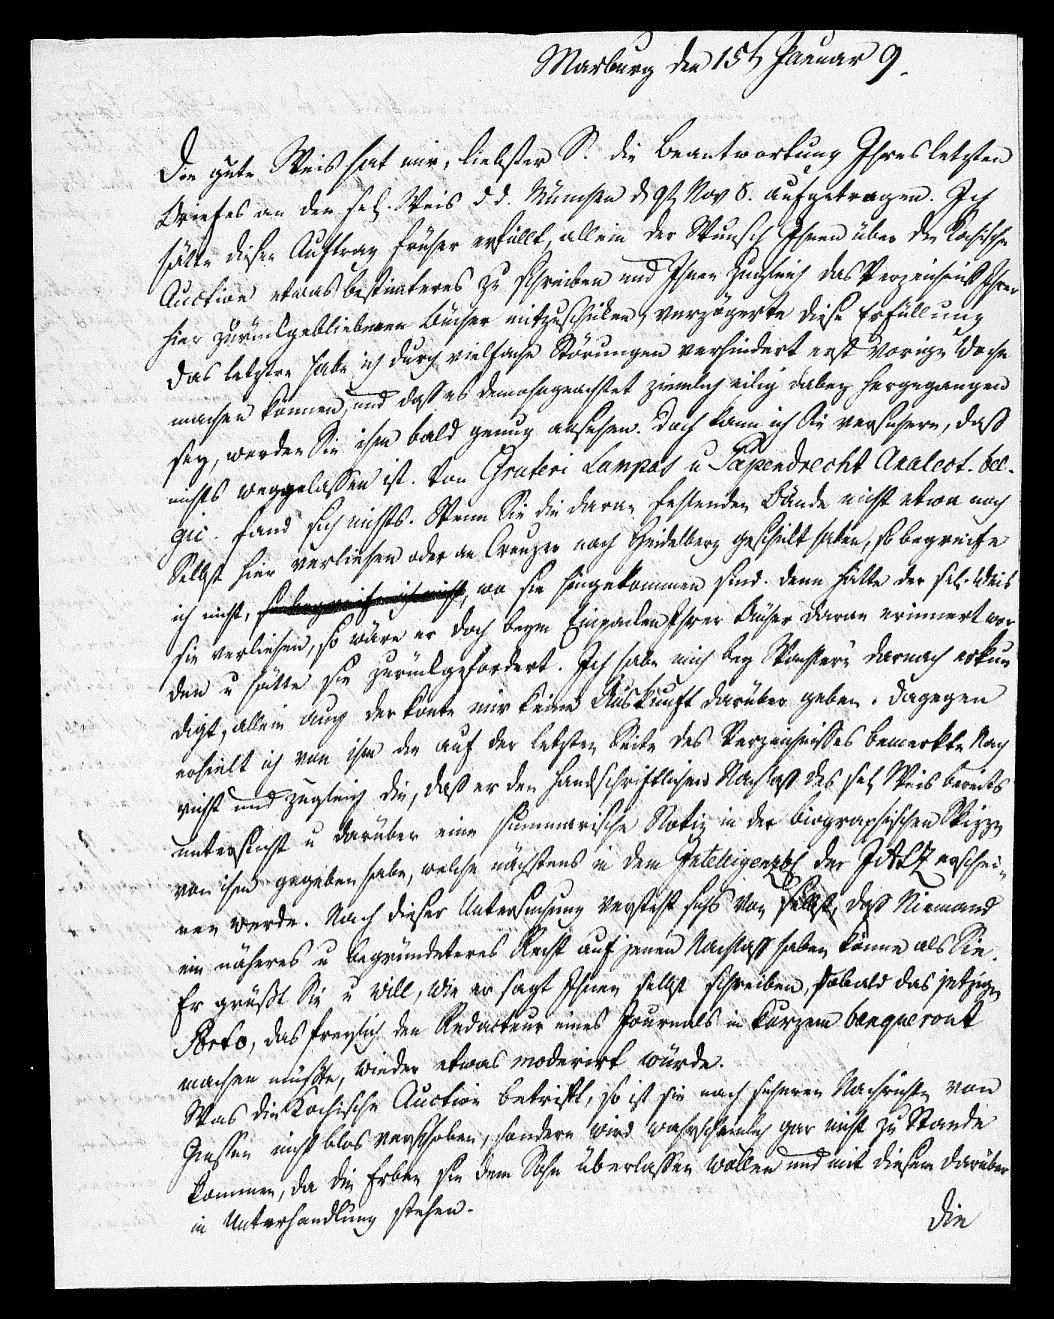 Marburg den 15t Januar 9.
Die gute Weis hat mir, liebster S. die Beantwortung Ihres letzten
Briefes an den sel. Weis d. d. München d 9t Nov 8. aufgetragen. Ich
hätte diesen Auftrag früher erfüllt, allein der Wunsch Ihnen über die Kochische
Auction etwas bestimteres zu schreiben und Ihnen zugleich das Verzeichniß Ihrer
hier zurückgebliebenen Bücher mitzuschicken, verzögerte diese Erfüllung
Das letztere habe ich durch vielfache Störungen verhindert erst vorige Woche
machen können, und daß es demohngeachtet ziemlich eilig dabey hergegangen
sey, werden Sie ihm bald genug ansehen. Doch kann ich Sie versichern, daß
nichts weggelassen ist. Von Gruteri Lampas u Papendrecht Analect. bel-
gic. fand sich nichts. Wenn Sie die daran fehlenden Bände nicht etwa noch
Selbst hier verliehen oder an Creuzer nach Heidelberg geschickt haben, so begreife
ich nicht, so begreife ich nicht, wo sie hingekommen sind. denn hätte der sel. Weis
sie verliehen, so wäre er doch beym Einpacken Ihrer Bücher daran erinnert wor
den u hätte sie zurückgefordert. Ich habe mich bey Wachlern darnach erkun
digt, allein auch der konte mir keine Auskunft darüber geben. Dagegen
erhielt ich von ihm die auf der letzten Seite des Verzeichnisses bemerkte Nach
richt und zugleich die, daß er den handschriftlichen Nachlaß des sel Weis bereits
untersucht u darüber eine summarische Notiz in der biographischen Skizze
von ihm gegeben habe, welche nächstens in dem Intelligenzbl der JALZ erschei-
nen werde. Nach dieser Untersuchung versteht sichs von selbst, daß Niemand
ein näheres u begründeteres Recht auf jenen Nachlaß haben könne als Sie.
Er grüßt Sie u will, wie er sagt Ihnen selbst schreiben, sobald das jetzige
Porto, das freylich den Redacteur eines Journals in kurzem banqueront
machen müßte, wieder etwas moderirt würde.
Was die Kochische Auction betrift, so ist sie nach sicheren Nachrichten von
Giessen nicht blos verschoben, sondern wird wahrscheinlich gar nicht zu Stande
kommen, da die Erben sie dem Sohn überlassen wollen und mit diesem darüber
in Unterhandlung stehen.
die